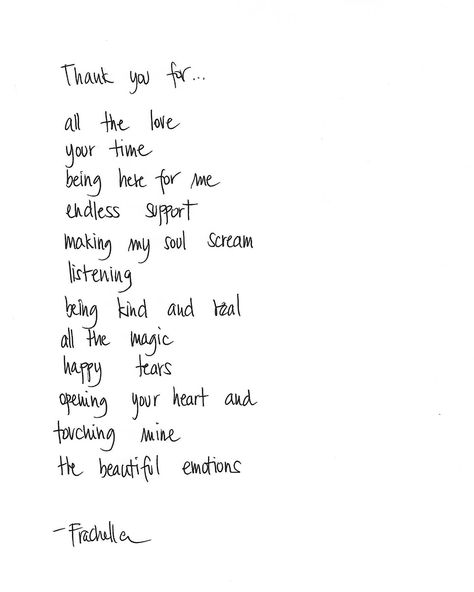 Thank you for...
all the love
your time
being here for me
endless support
making my soul scream
listening
being kind and real
all the magic
happy tears
opening your heart and
touching mine
the beautiful emotions
- Frachella